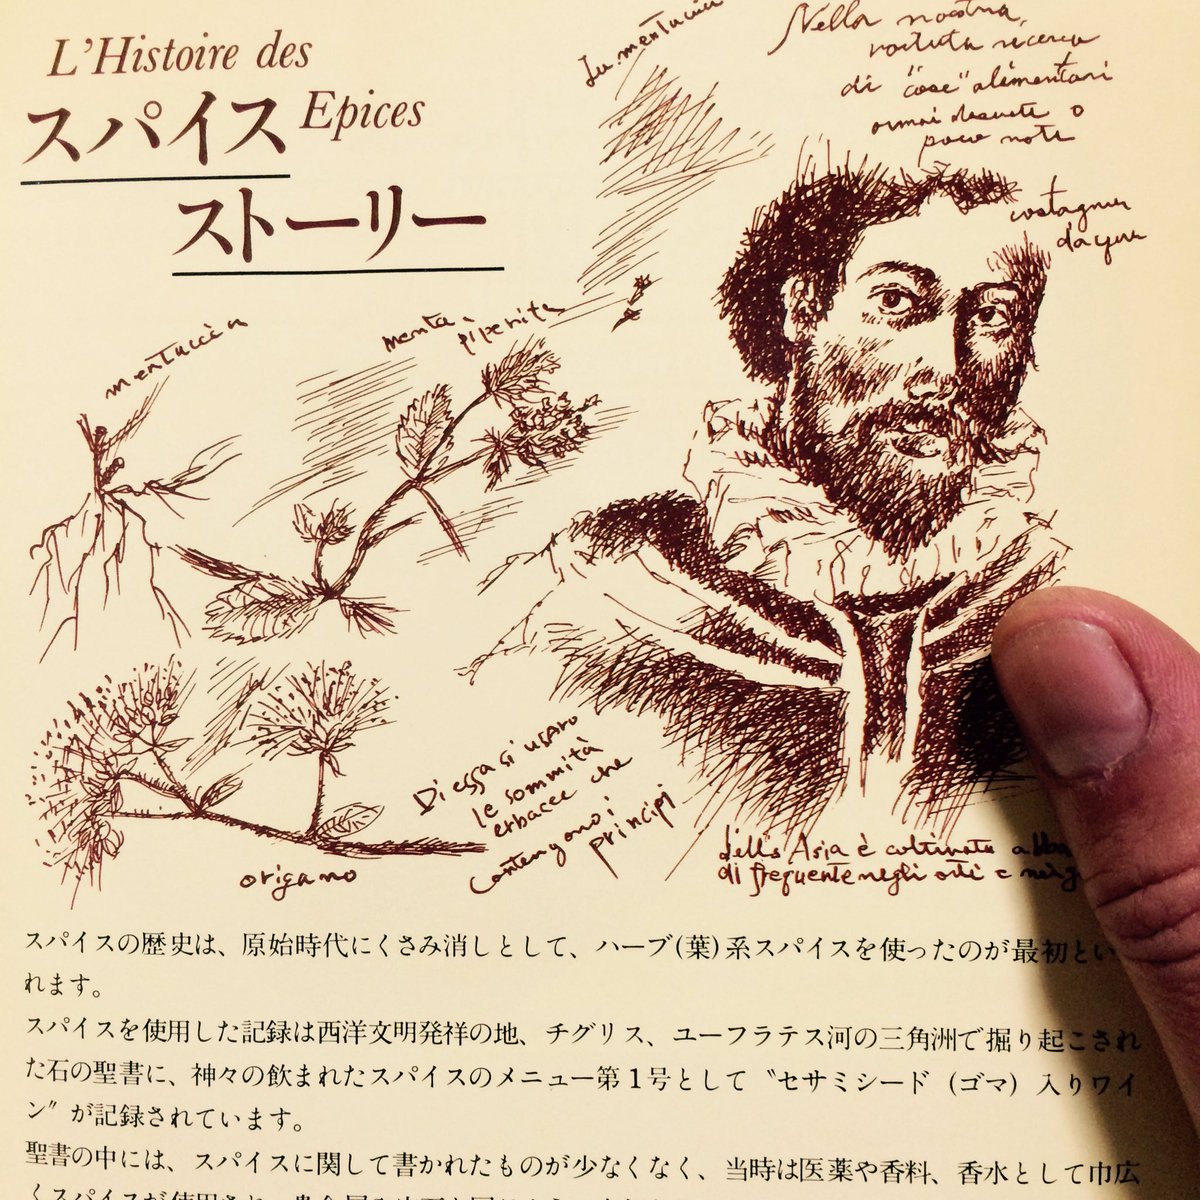 L'Histoire des
Epices
スパイス
ストーリー
La mentuccia
Nella nostra
ricerca
di "cose" alimentari
ormai desuete o
poco note
mentuccia
menta
piperita
Di essa si usano
le sommità
erbacee che
contengono i
principi
origano
dell'Asia è coltivata
di frequente negli orti e
スパイスの歴史は、原始時代にくさみ消しとして、ハーブ(葉)系スパイスを使ったのが最初とい
れます。
スパイスを使用した記録は西洋文明発祥の地、チグリス、ユーフラテス河の三角洲で掘り起こされ
た石の聖書に、神々の飲まれたスパイスのメニュー第1号として〝セサミシード (ゴマ) 入りワイ
ン〟が記録されています。
聖書の中には、スパイスに関して書かれたものが少なくなく、当時は医薬や香料、香水として巾広
くスパイスが使用され、